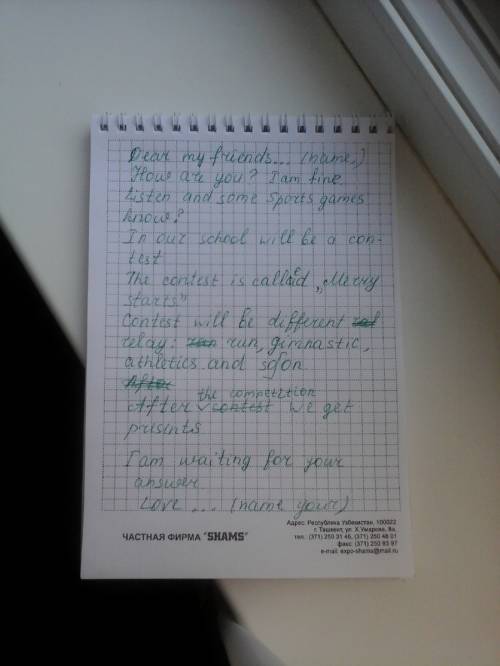 Dear my friends... (name,)
How are you? I am fine.
Listen and some sports games
know?
In our school will be a con-
test
The contest is called „Merry
starts"
Contest will be different
relay: run, gimnastic,
athletics and so on
After
the competition
After contest we get
presents
I am waiting for your
answer
Love ... (name your)
ЧАСТНАЯ ФИРМА "SHAMS"
Адрес: Республика Узбекистан, 100022
г. Ташкент, ул. Х.Умарова, 8а,
тел. (371) 250 31 46, (371) 250 48 01
факс: (371) 250 93 97
e-mail: expo-shams@mail.ru